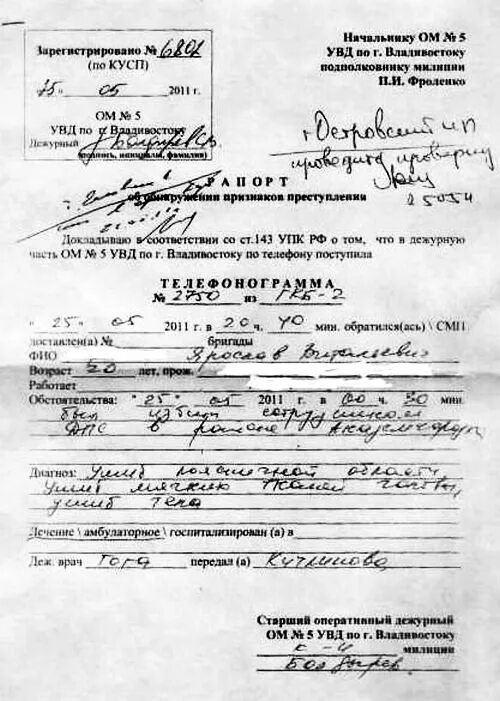 Зарегистрировано № 6802
(по КУСП)
25 05 2011 г.
ОМ № 5
УВД по г. Владивостоку
Дежурный
(подпись, инициалы, фамилия)
Начальнику ОМ № 5
УВД по г. Владивостоку
подполковнику милиции
П.И. Фроленко
г. Островский
проводите проверку
РАПОРТ
об обнаружении признаков преступления
Докладываю в соответствии со ст.143 УПК РФ о том, что в дежурную
часть ОМ № 5 УВД по г. Владивостоку по телефону поступила
ТЕЛЕФОНОГРАММА
№ 2750 из ГКБ-2
"25" 05 2011 г. в 20 ч. 40 мин. обратился(ась) \ СМП
доставлен(а) № бригады
ФИО Ярослав Витальевич
Возраст 20 лет, прож.
Работает
Обстоятельства: "25" 05 2011 г. в 00 ч. 30 мин.
был избит сотрудником
ДПС в районе Академгородка
Диагноз: Ушиб поясничной области
Ушиб мягких тканей головы,
ушиб тела
Лечение \ амбулаторное \ госпитализирован (а) в
Деж. врач передал (а)
Старший оперативный дежурный
ОМ № 5 УВД по г. Владивостоку
к-н милиции
Болдырев